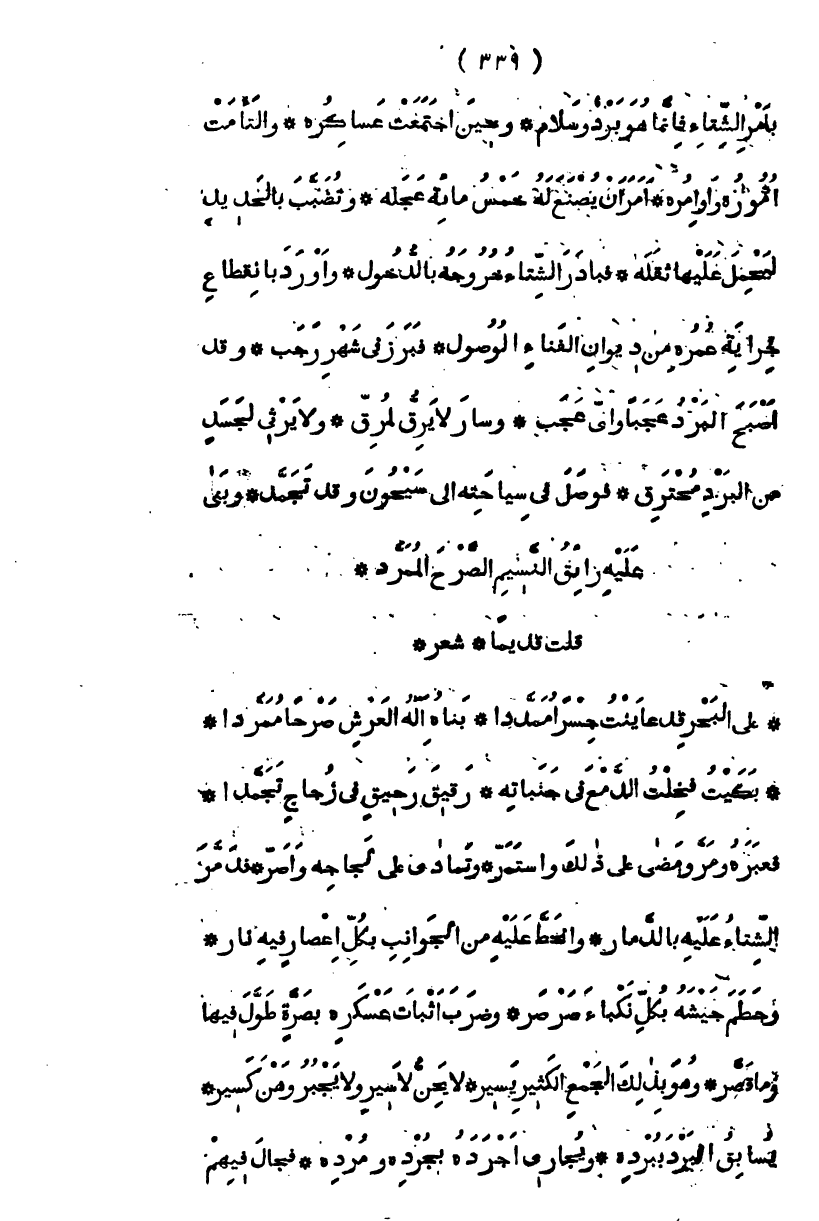 ( ٣٣٩ )
بأَمْرِ الشِّتاءِ فإنَّما هو بَرْدٌ وسَلامٌ * وحِينَ اجْتَمَعَتْ عَساكِرُه * والْتَأَمَتْ
أمُورُه وأوامِرُه * أَمَرَ أنْ يُصْنَعَ لَهُ خَمْسُ مائةِ عَجَلة * وتُضَبَّبَ بالحَدِيد
لِتَحْمِلَ عَلَيْها ثقَلَه * فبادَرَ الشِّتاءُ خُرُوجَهُ بالدُّخول * وأَوْرَدَ بانقِطاعِ
جِرايَةِ عُمْرِهِ مِن دِيوانِ الفَناءِ الوُصول * فبَرَزَ في شَهْرِ رَجَب * وقد
أصْبَحَ البَرْدُ عَجَبًا وأيَّ عَجَب * وسارَ لا يَرِقُّ لِمُرِقّ * ولا يَرْثي لِجَسَدٍ
من البَرْدِ مُحْتَرِق * فوَصَلَ في سِياحَتِه الى سَيْحُونَ وقد تَجَمَّد * وبَنَى
عَلَيْهِ رائِقُ النَّسِيمِ الصَّرْحَ المُمَرَّد *
قلت قديما * شعر *
* على البَحْرِ قد عايَنْتُ جِسْرًا مُمَدَّدا * بَناهُ إلَهُ العَرْشِ صَرْحًا مُمَرَّدا *
* بَكَيْتُ فخِلْتُ الدَّمْعَ في جَنَباتِه * رَقِيقَ رَحِيقٍ في زُجاجٍ تَجَمَّدا *
فعبَرَه ومَرَّ ومَضَى على ذٰلكَ واسْتَمَرّ * وتَمادَى على لَجاجِه وأَصَرّ * فدَمَّرَ
الشِّتاءُ عَلَيْهِ بالدَّمار * وانْحَطَّ عَلَيْهِ من الجَوانِبِ بكُلِّ إعْصارٍ فِيهِ نار *
وحَطَمَ جَيْشَهُ بكُلِّ نَكْباءَ صَرْصَر * وضَرَبَ اثْباتَ عَسْكَرِه بصَرَّةٍ طَوَّلَ فِيها
وما قَصَّر * وهُوَ بِذٰلكَ الجَمْعِ الكَثِيرِ يَسِير * لا يَحِنُّ لأَسِيرٍ ولا يَجْبُرُ وَهْنَ كَسِير *
يُسابِقُ البَرْدَ ببَرْدِه * ويُجارِي أجْرَدَهُ بجُرْدِه ومُرْدِه * فجالَ فِيهِمْ